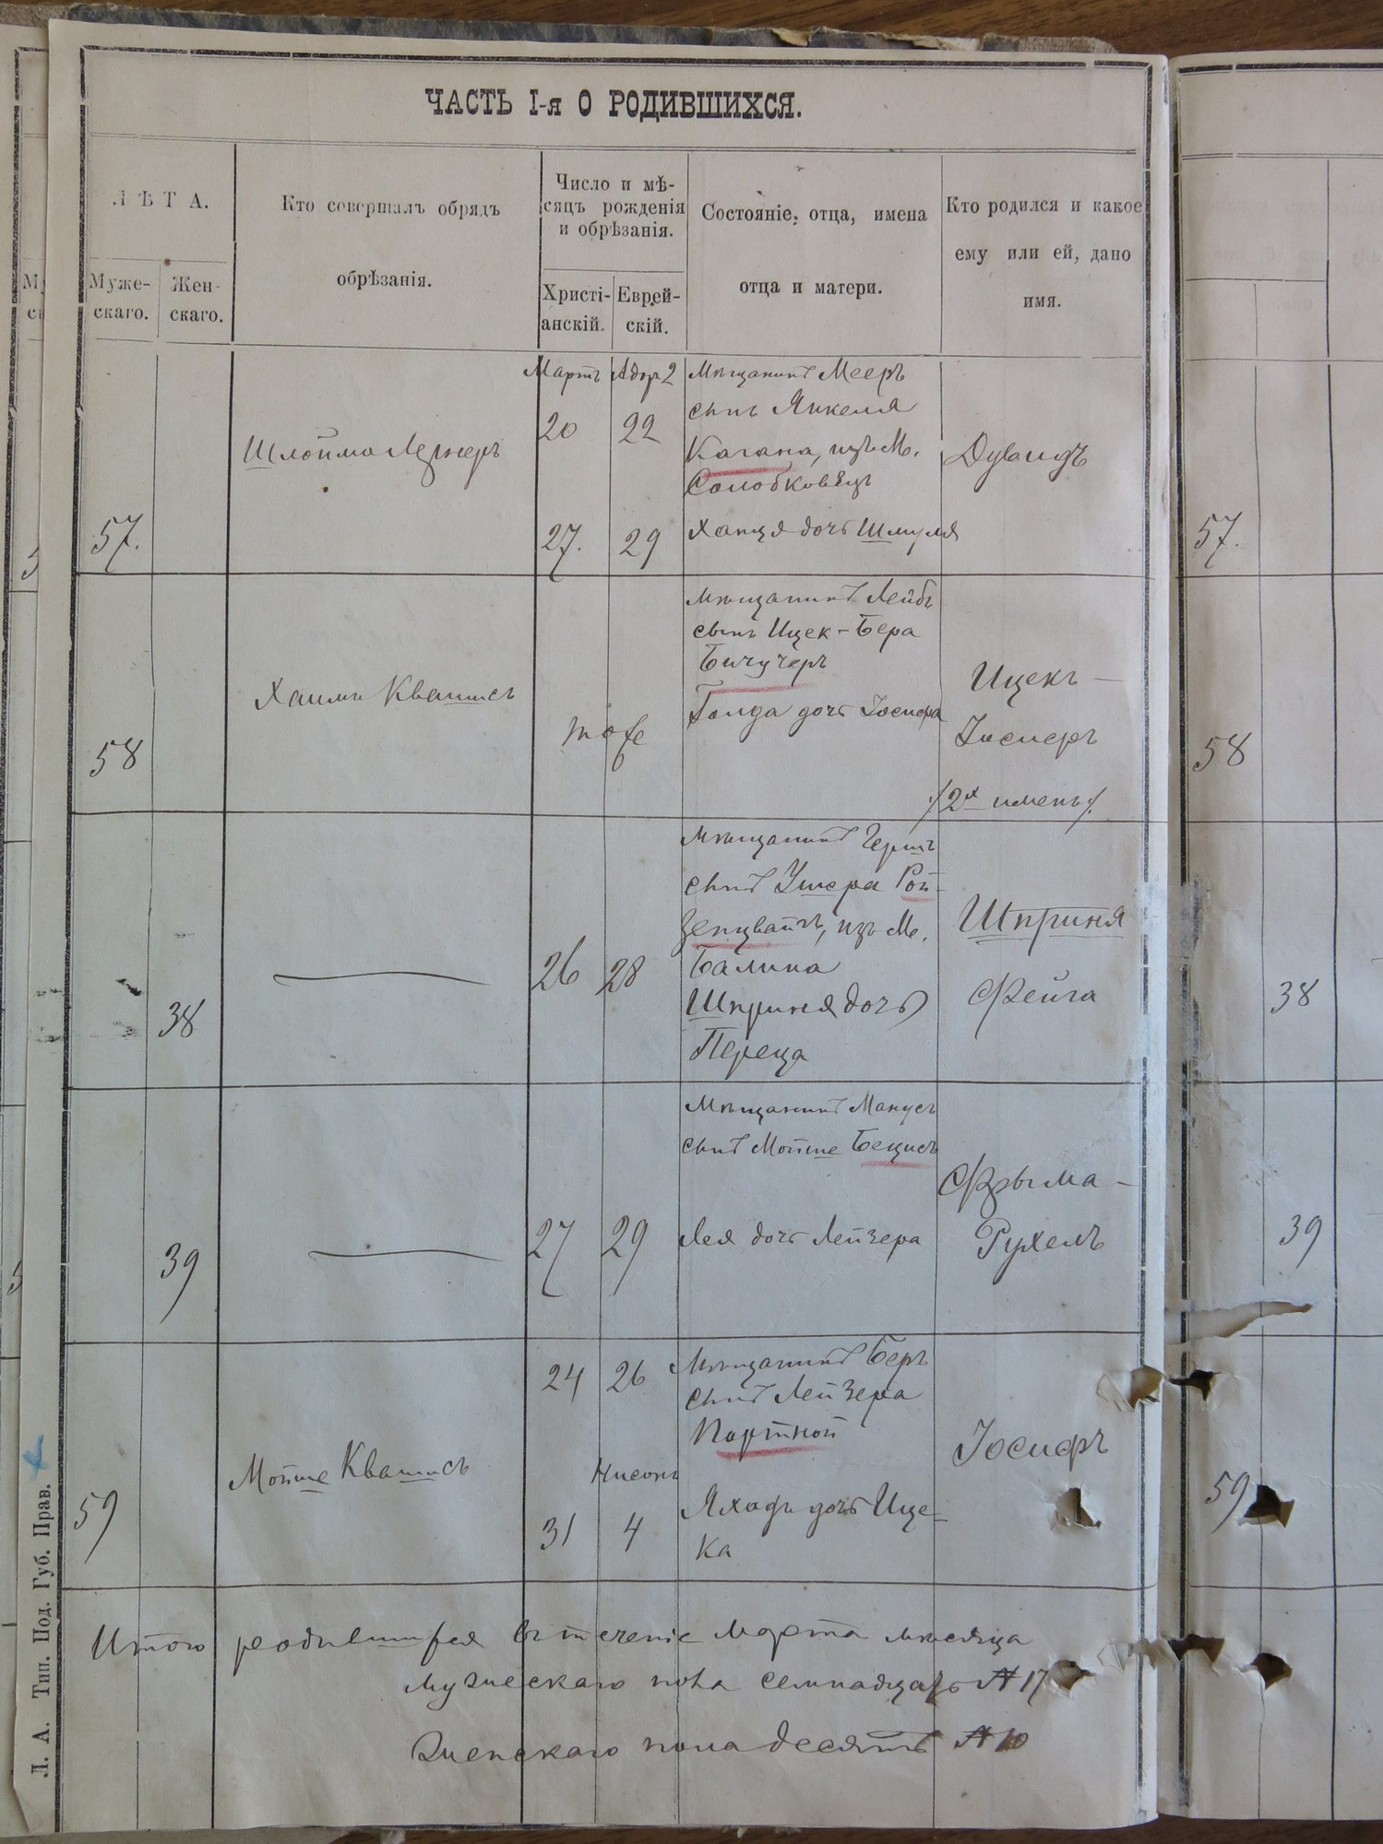 ЧАСТЬ I-я О РОДИВШИХСЯ.
ЛѢТА.
Муже-
скаго.
Жен-
скаго.
Кто совершалъ обрядъ
обрѣзанія.
Число и мѣ-
сяцъ рожденія
и обрѣзанія.
Христі-
анскій.
Еврей-
скій.
Состояніе, отца, имена
отца и матери.
Кто родился и какое
ему или ей, дано
имя.
57.
Шлойма Лернеръ
Мартъ
20
27.
Адор 2
22
29
Мѣщанинъ Мееръ
сынъ Янкеля
Кагана, изъ М.
Солобковецъ
Ханця дочь Шмуля
Дувидъ
57.
58
Хаимъ Квашисъ
тоже
Мѣщанинъ Лейбъ
сынъ Ицек-Бера
Бичучеръ
Голда дочь Іосифа
Ицекъ-
Іосифъ
/2х именъ/.
58
38
26
28
Мѣщанинъ Гершъ
сынъ Ушера Рой-
зенцвайгъ, изъ М.
Балина
Шприня дочь
Переца
Шприня
Фейга
38
39
27
29
Мѣщанинъ Манусъ
сынъ Мойше Бецисъ
Лея дочь Лейзера
Фрыма-
Рухель
39
59
Мойше Квашисъ
24
31
26
Нисонъ
4
Мѣщанинъ Беръ
сынъ Лейзера
Портной
дочь Ице-
ка
Іосифъ
59
Итого родившихся въ теченіе Марта мѣсяца
мужескаго пола семнадцать № 17
женскаго пола десять № 10
Л. А. Тип. Под. Губ. Прав.